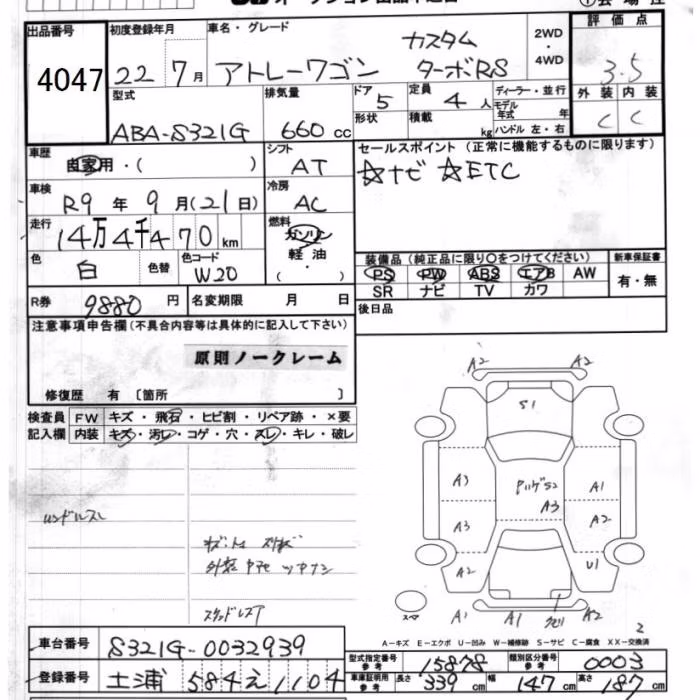 出品番号 初度登録年月 車名・グレード 2WD・4WD 評価点
4047 22年 7月 アトレーワゴン カスタム ターボRS 3.5
型式 排気量 ドア 5 定員 4人 ディーラー・並行 外装 内装
ABA-S321G 660cc 形状 積載 kg モデル年式 年 ハンドル 左・右 C C
車歴 自家用・( ) シフト AT セールスポイント (正常に機能するものに限ります)
☆ナビ ☆ETC
車検 R9年 9月(21日) 冷房 AC
走行 14万4千470km 燃料 ガソリン 軽油 ( ・ )
色 白 色替 色コード W20
装備品 (純正品に限り○をつけてください) 新車保証書
PS PW ABS エアB AW 有・無
SR ナビ TV カワ
R券 9880円 名変期限 月 日 後日品
注意事項申告欄(不具合内容等は具体的に記入して下さい)
原則ノークレーム
修復歴 有 〔箇所 〕
検査員 FW キズ・飛石・ヒビ割・リペア跡・×要
記入欄 内装 キズ・汚レ・コゲ・穴・スレ・キレ・破レ
A2 A2
S1
A3 A3 A1
A3 A2
A2 U1
A1 A1 A2
スペア
スタッドレスタイヤ
A-キズ E-エクボ U-凹み W-補修跡 S-サビ C-腐食 XX-交換済
車台番号 S321G-0032939
型式指定番号 参考 15878 類別区分番号 参考 0003
登録番号 土浦 584 え 1104
車庫証明用 参考 長さ 339cm 幅 147cm 高さ 187cm